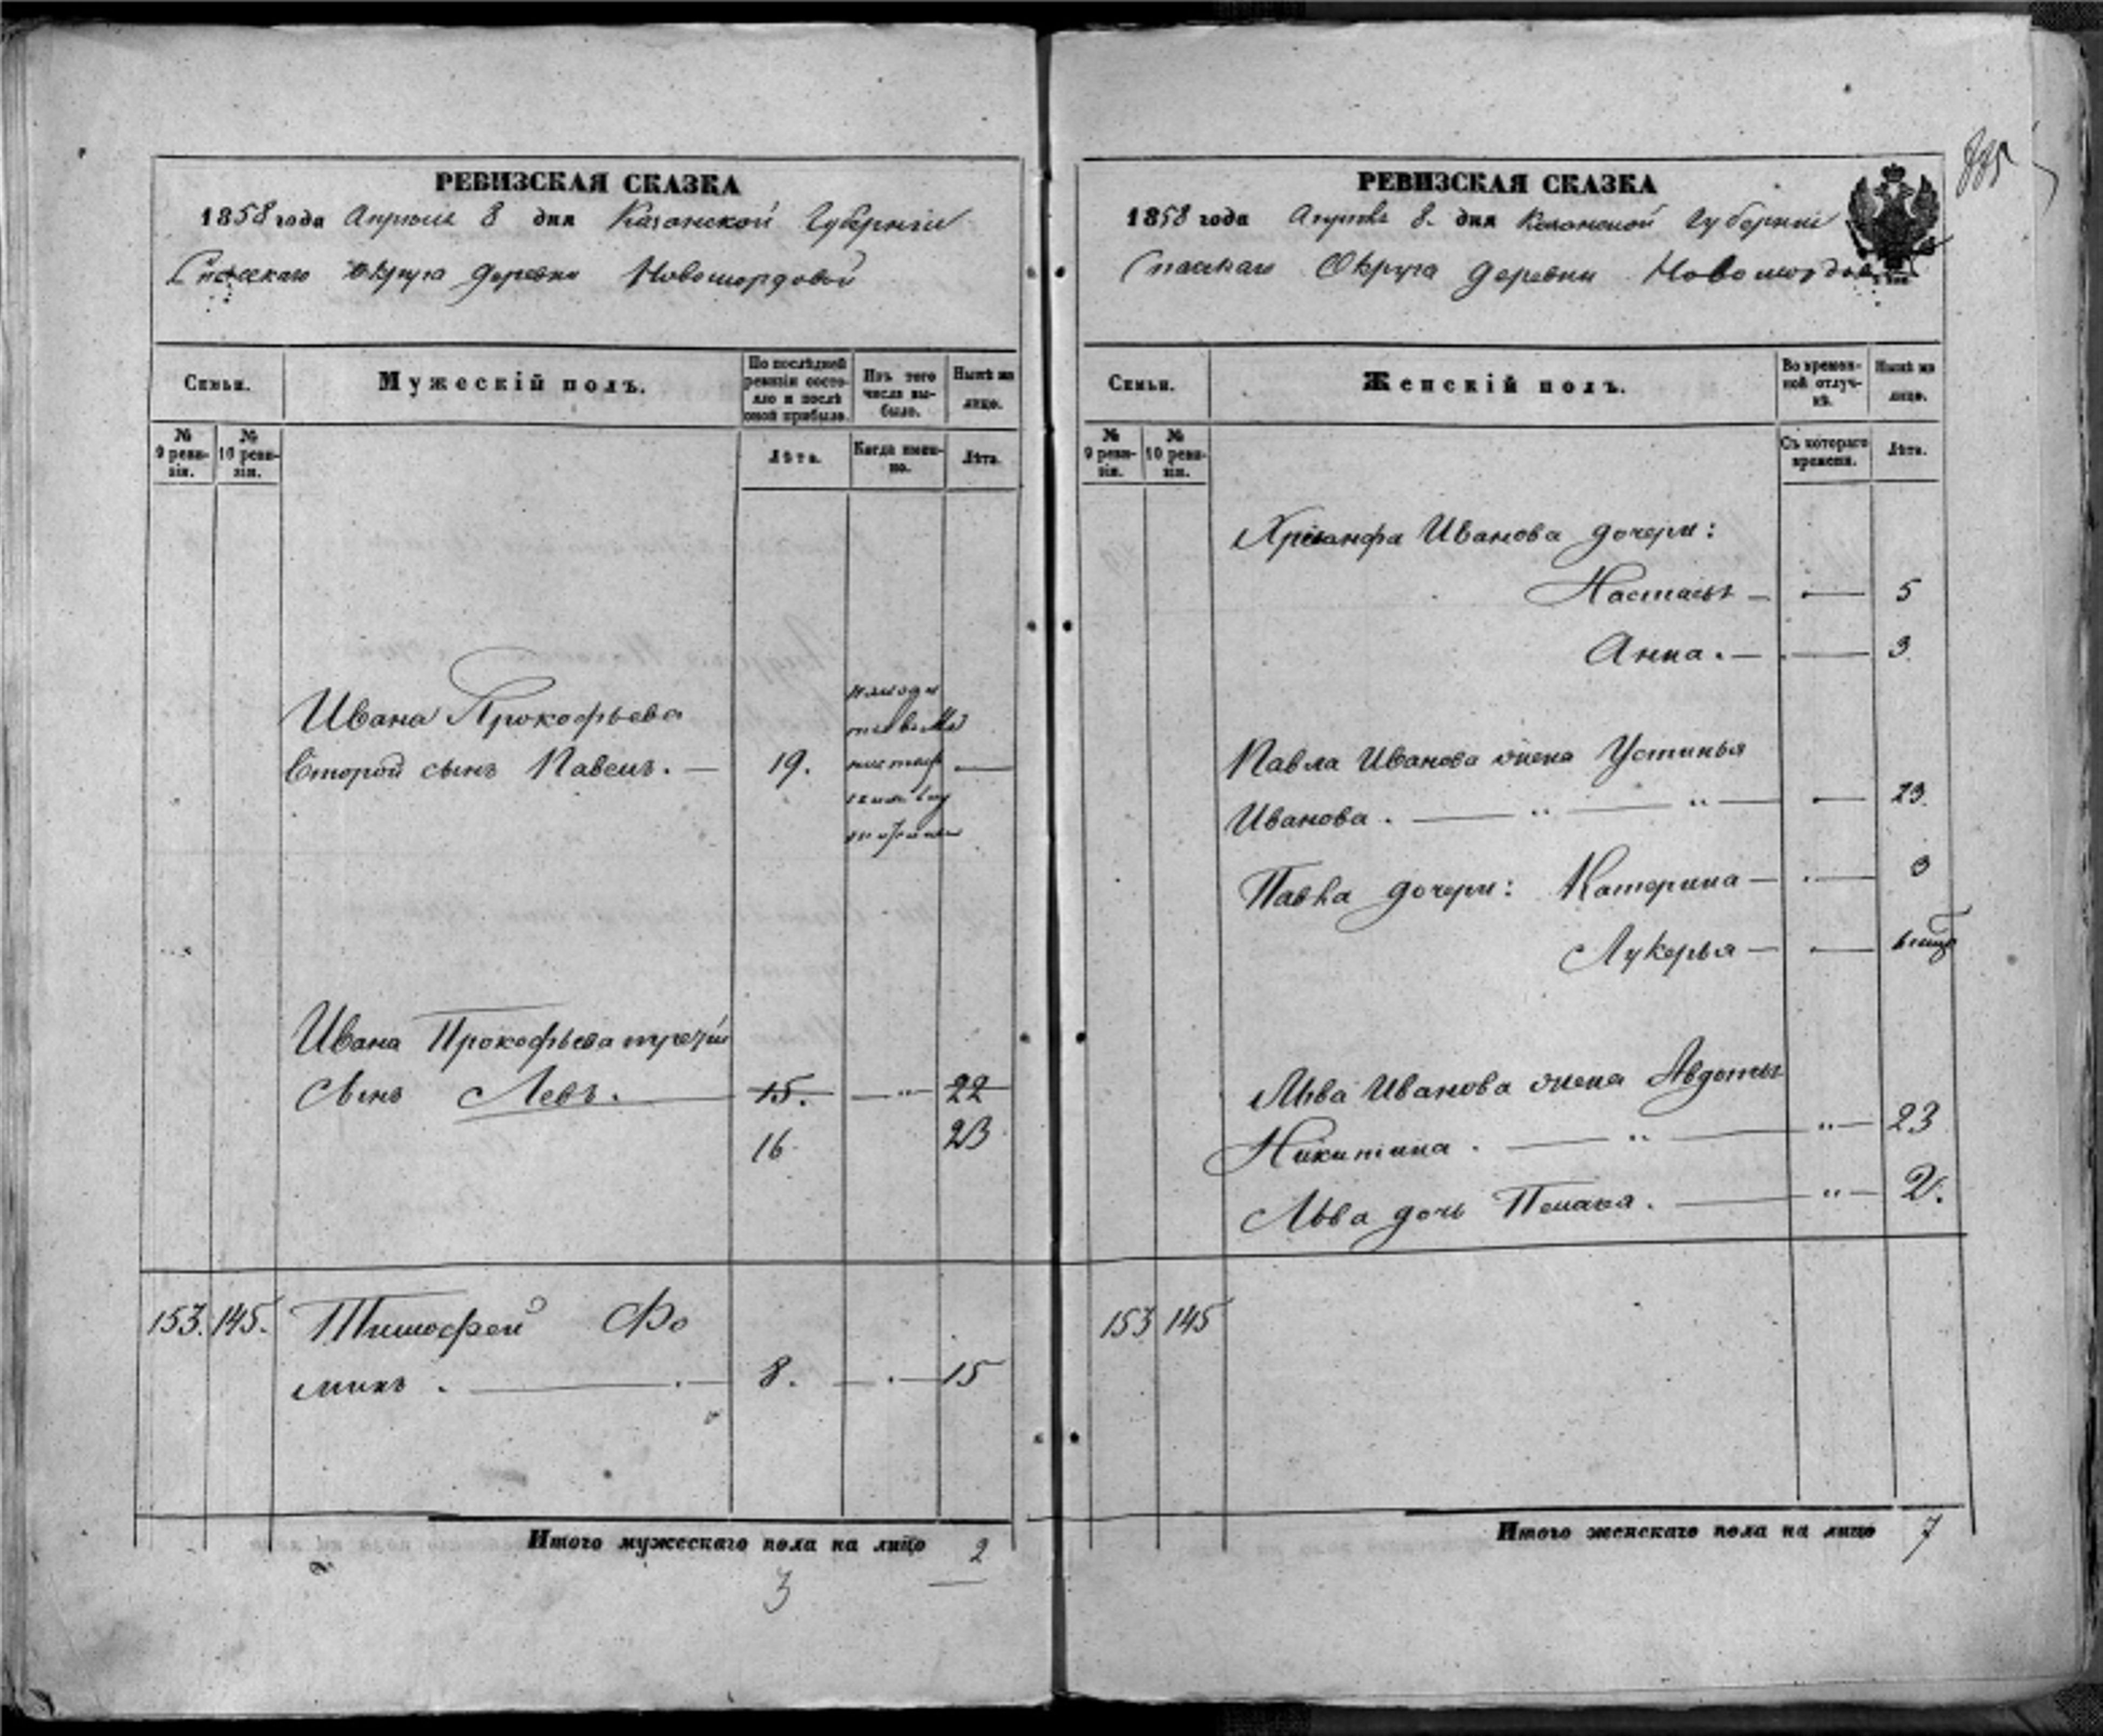 РЕВИЗСКАЯ СКАЗКА
1858 года Апреля 8 дня Казанской Губернiи
Спасскаго Округа деревни Новомордовой
Семьи.
Мужескiй полъ.
По послѣдней ревизiи состояло и послѣ оной прибыло.
Изъ того числа выбыло.
Нынѣ на лицо.
№ 9 ревизiи.
№ 10 ревизiи.
Лѣта.
Когда именно.
Лѣта.
Ивана Прокофьева
Второй сынъ Павелъ. — 19. —
Ивана Прокофьева третiй
Сынъ Левъ. 15. — " — 22
16 23
153. 145. Тимофей Фо
минъ . — . — 8. — . — 15
Итого мужескаго пола на лицо 2
3
885
РЕВИЗСКАЯ СКАЗКА
1858 года Апреля 8. дня Казанской Губернiи
Спасскаго Округа деревни Новомордовой
Семьи.
Женскiй полъ.
Во временной отлучкѣ.
Нынѣ на лицо.
№ 9 ревизiи.
№ 10 ревизiи.
Съ котораго времени.
Лѣта.
Хрисанфа Иванова дочери:
Настасья — — 5
Анна. — — 3
Павла Иванова жена Устинья
Иванова . — " — " — — 23.
Павла дочери: Катерина — — 3
Лукерья — —
Льва Иванова жена Авдотья
Никитина . — " — " — 23
Льва дочь Пелагея. — " — 2.
153 145
Итого женскаго пола на лицо 7